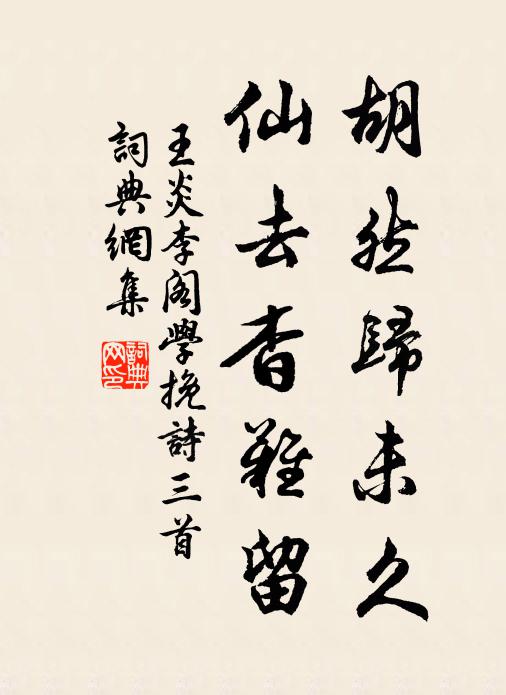 胡然歸未久
仙去杳難留
王炎李閣學挽詩三首
詞典網集
詞典网印